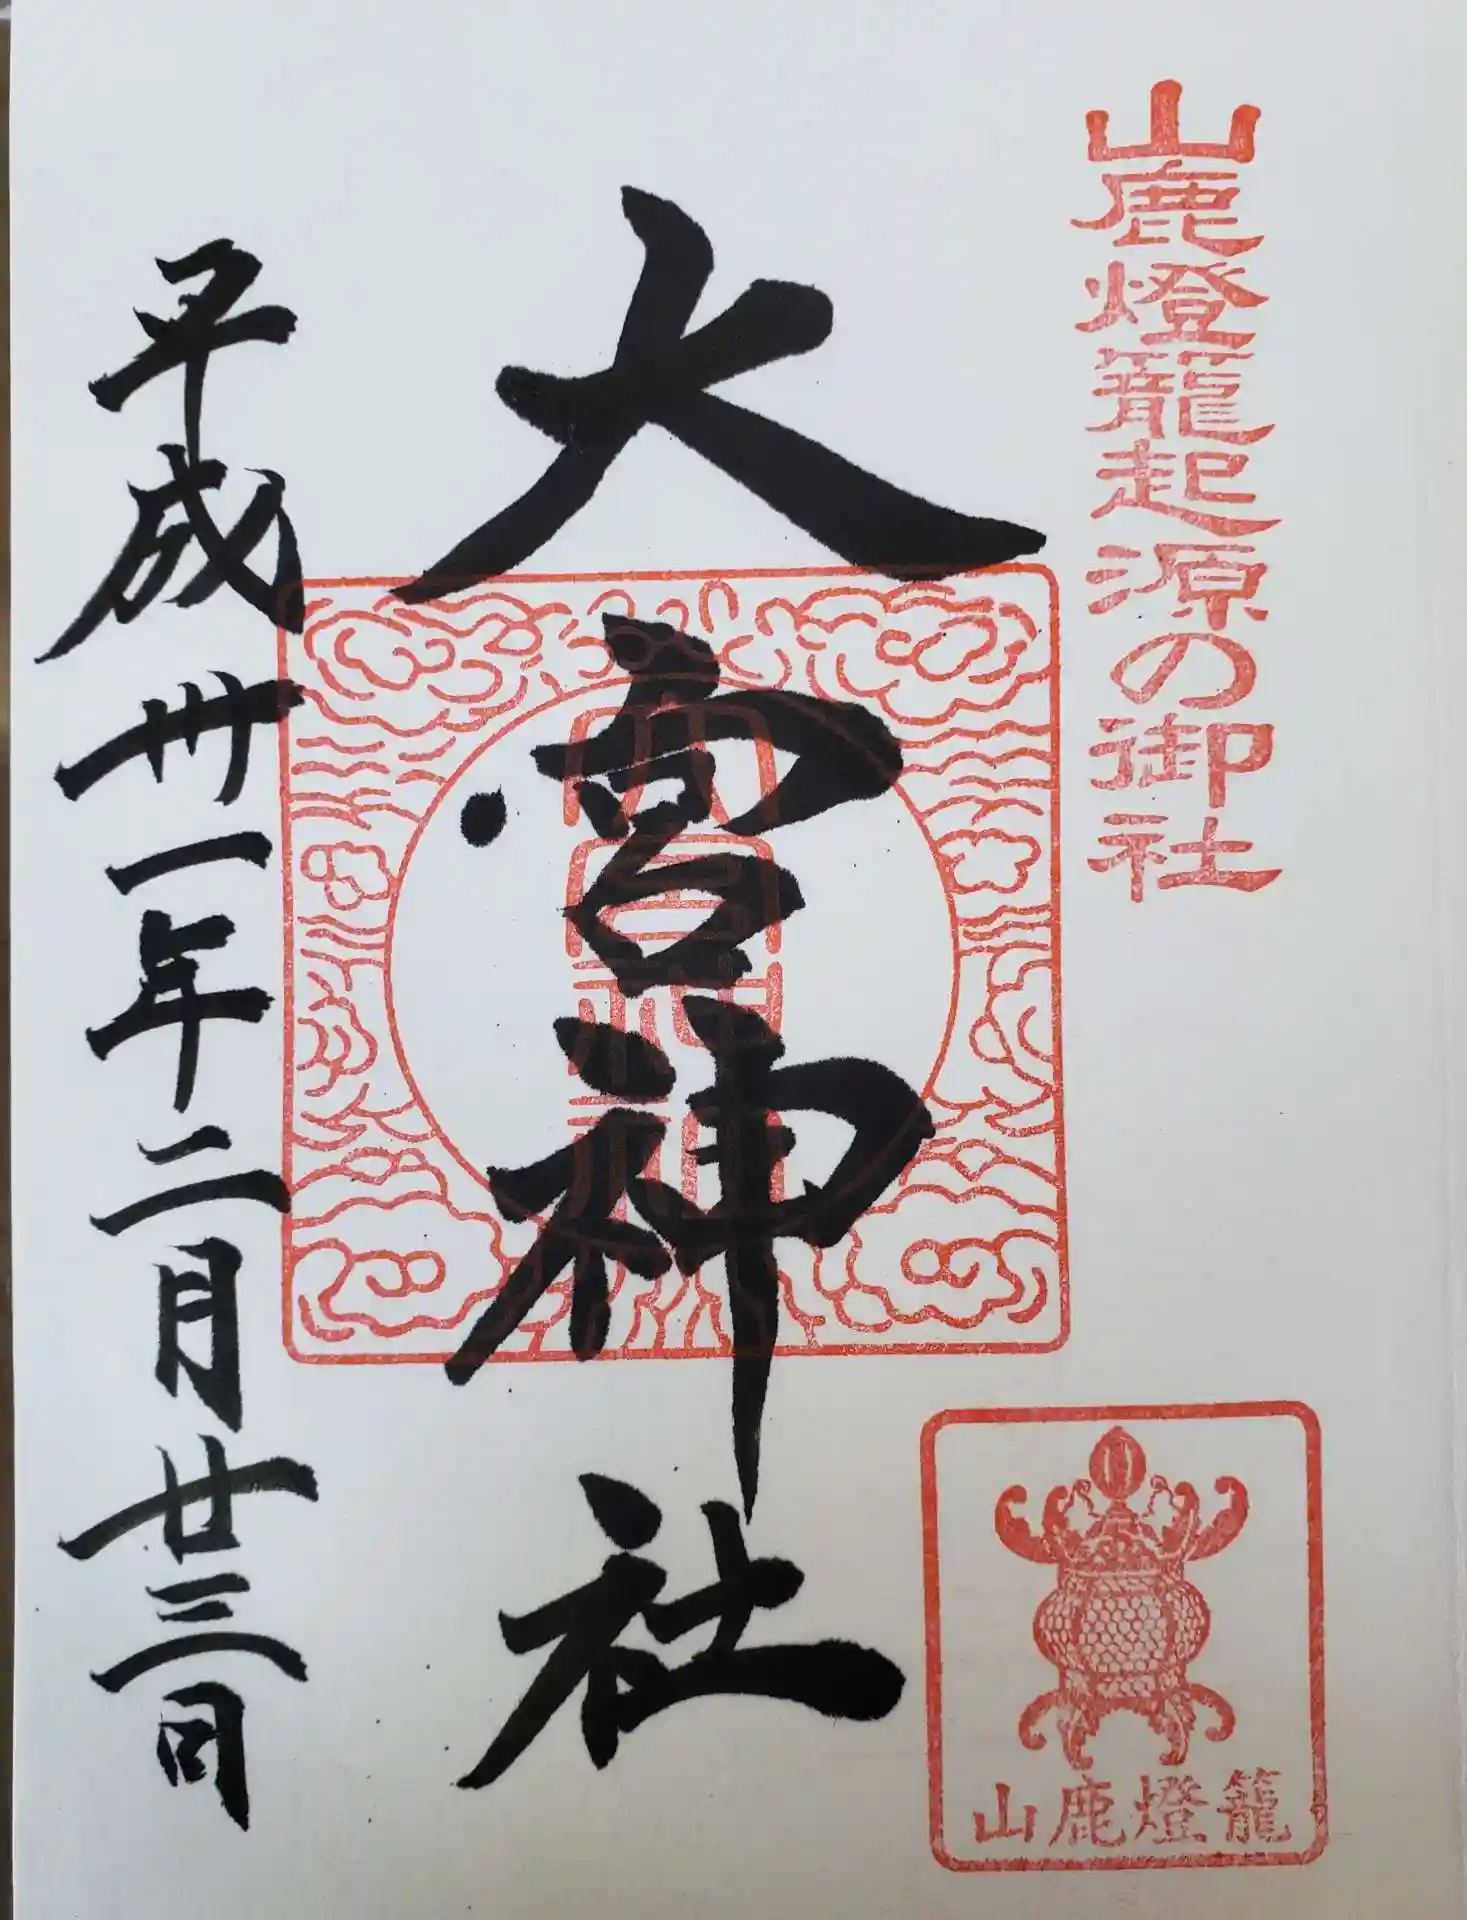 山鹿燈籠起源の御社
大宮神社
大宮神社
平成卅一年二月廿三日
山鹿燈籠